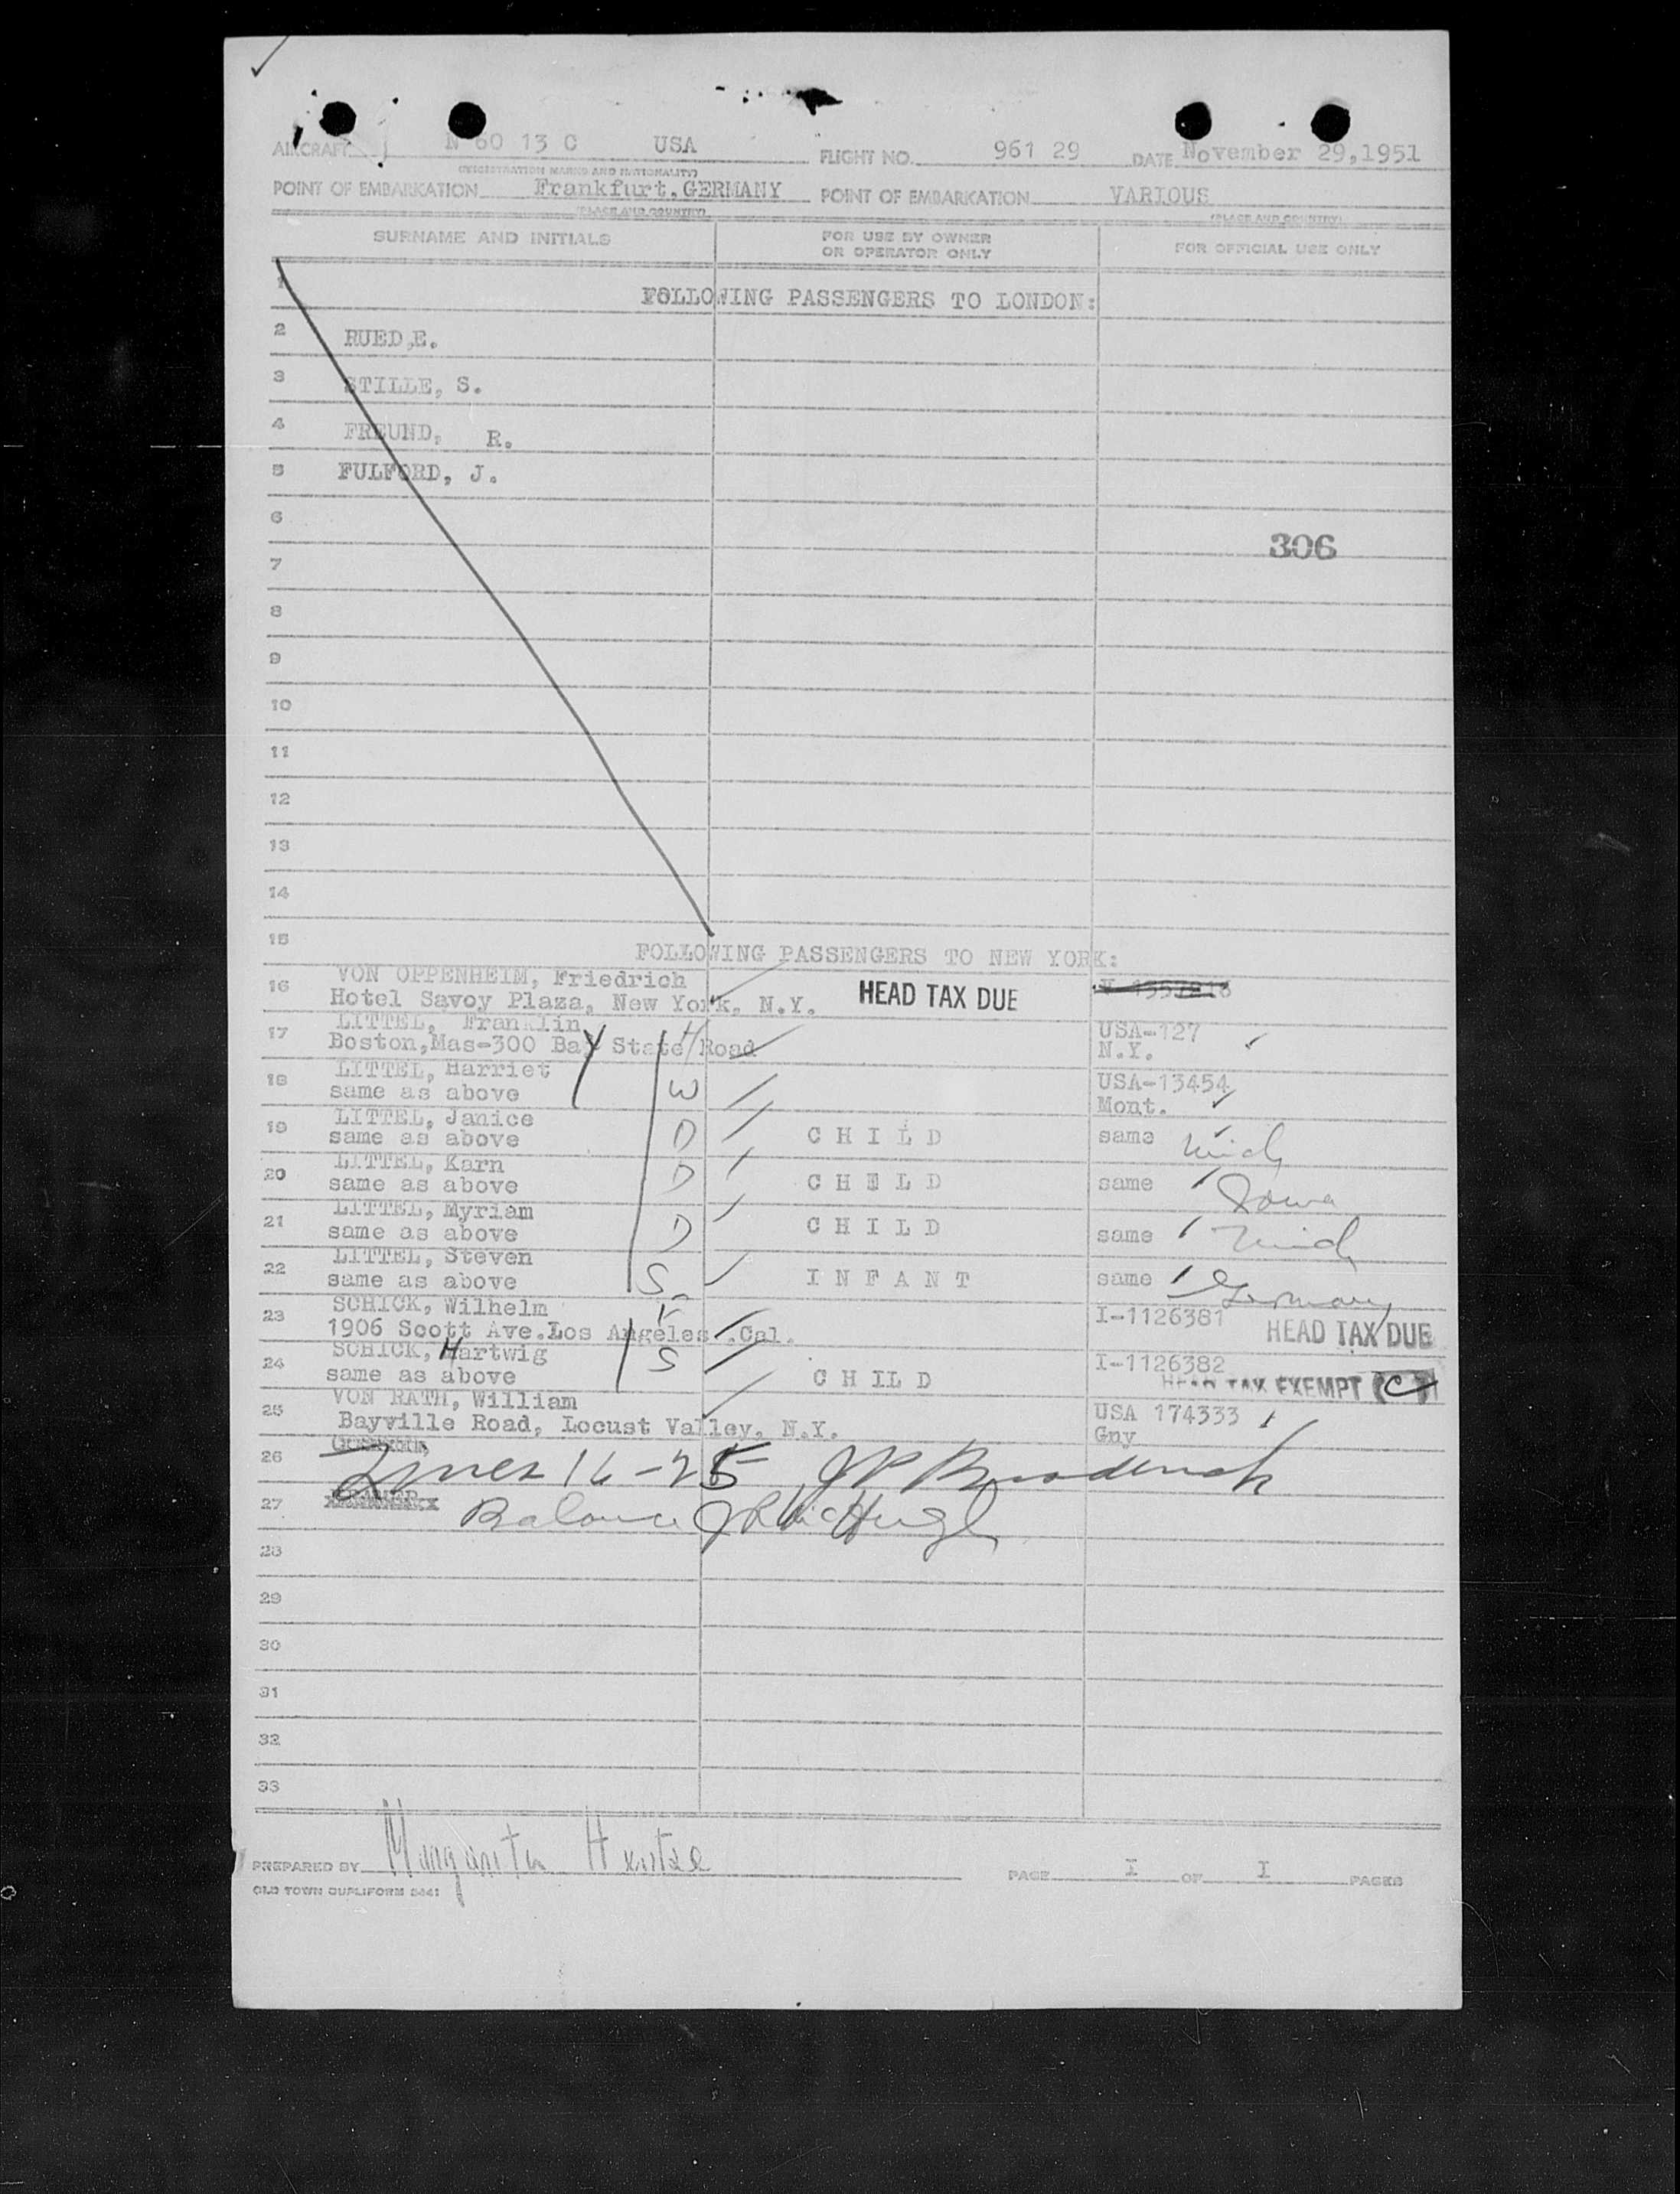 AIRCRAFT N 60 13 C USA FLIGHT NO. 961 29 DATE November 29,1951
(REGISTRATION MARKS AND NATIONALITY)
POINT OF EMBARKATION Frankfurt.GERMANY POINT OF EMBARKATION VARIOUS
(PLACE AND COUNTRY) (PLACE AND COUNTRY)
SURNAME AND INITIALS FOR USE BY OWNER OR OPERATOR ONLY FOR OFFICIAL USE ONLY
1 FOLLOWING PASSENGERS TO LONDON:
2 RUED,E.
3 STILLE, S.
4 FREUND, R.
5 FULFORD, J.
6
306
7
8
9
10
11
12
13
14
15 FOLLOWING PASSENGERS TO NEW YORK:
16 VON OPPENHEIM, Friedrich
Hotel Savoy Plaza, New York, N.Y. HEAD TAX DUE
17 LITTEL, Franklin USA-127
Boston,Mas-300 Bay State Road H N.Y.
18 LITTEL, Harriet USA-13454
same as above W Mont.
19 LITTEL, Janice
same as above D CHILD same Mich
20 LITTEL, Karn
same as above D CHELD same Iowa
21 LITTEL, Myriam
same as above D CHILD same Mich
22 LITTEL, Steven
same as above S INFANT same Germany
23 SCHICK, Wilhelm F I-1126381
1906 Scott Ave.Los Angeles .Cal. HEAD TAX DUE
24 SCHICK, Hartwig S I-1126382
same as above CHILD HEAD TAX EXEMPT (C)
25 VON RATH, William USA 174333
Bayville Road, Locust Valley, N.Y. Gny
26 Lines 16-25 JP Broderick
27 Balance J R McHugh
28
29
30
31
32
33
PREPARED BY Margarita Hentze PAGE I OF I PAGES
OLD TOWN DUPLIFORM 5441